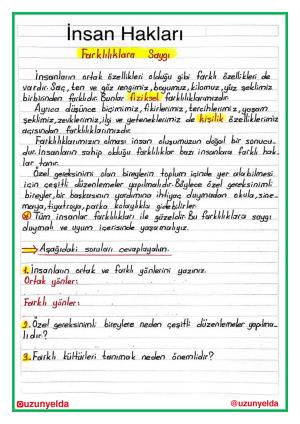 İnsan Hakları
Farklılıklara Saygı
İnsanların ortak özellikleri olduğu gibi farklı özellikleri de
vardır. Saç, ten ve göz rengimiz, boyumuz, kilomuz, yüz şeklimiz
birbirinden farklıdır. Bunlar fiziksel farklılıklarımızdır.
Ayrıca düşünce biçimimiz, fikirlerimiz, tercihlerimiz, yaşam
şeklimiz, zevklerimiz, ilgi ve yeteneklerimiz de kişilik özelliklerimiz
açısından farklılıklarımızdır.
Farklılıklarımızın olması insan oluşumuzun doğal bir sonucu-
dur. İnsanların sahip olduğu farklılıklar bazı insanlara farklı hak-
lar tanır.
Özel gereksinimi olan bireylerin toplum içinde yer alabilmesi
için çeşitli düzenlemeler yapılmalıdır. Böylece özel gereksinimli
bireyler, bir başkasının yardımına ihtiyaç duymadan okula, sine-
maya, tiyatroya, parka kolaylıkla gidebilirler.
Tüm insanlar farklılıkları ile güzeldir. Bu farklılıklara saygı
duymalı ve uyum içerisinde yaşamalıyız.
Aşağıdaki soruları cevaplayalım.
1. İnsanların ortak ve farklı yönlerini yazınız.
Ortak yönler:
Farklı yönler:
2. Özel gereksinimli bireylere neden çeşitli düzenlemeler yapılma-
lıdır?
3. Farklı kültürleri tanımak neden önemlidir?
@uzunyelda
@uzunyelda